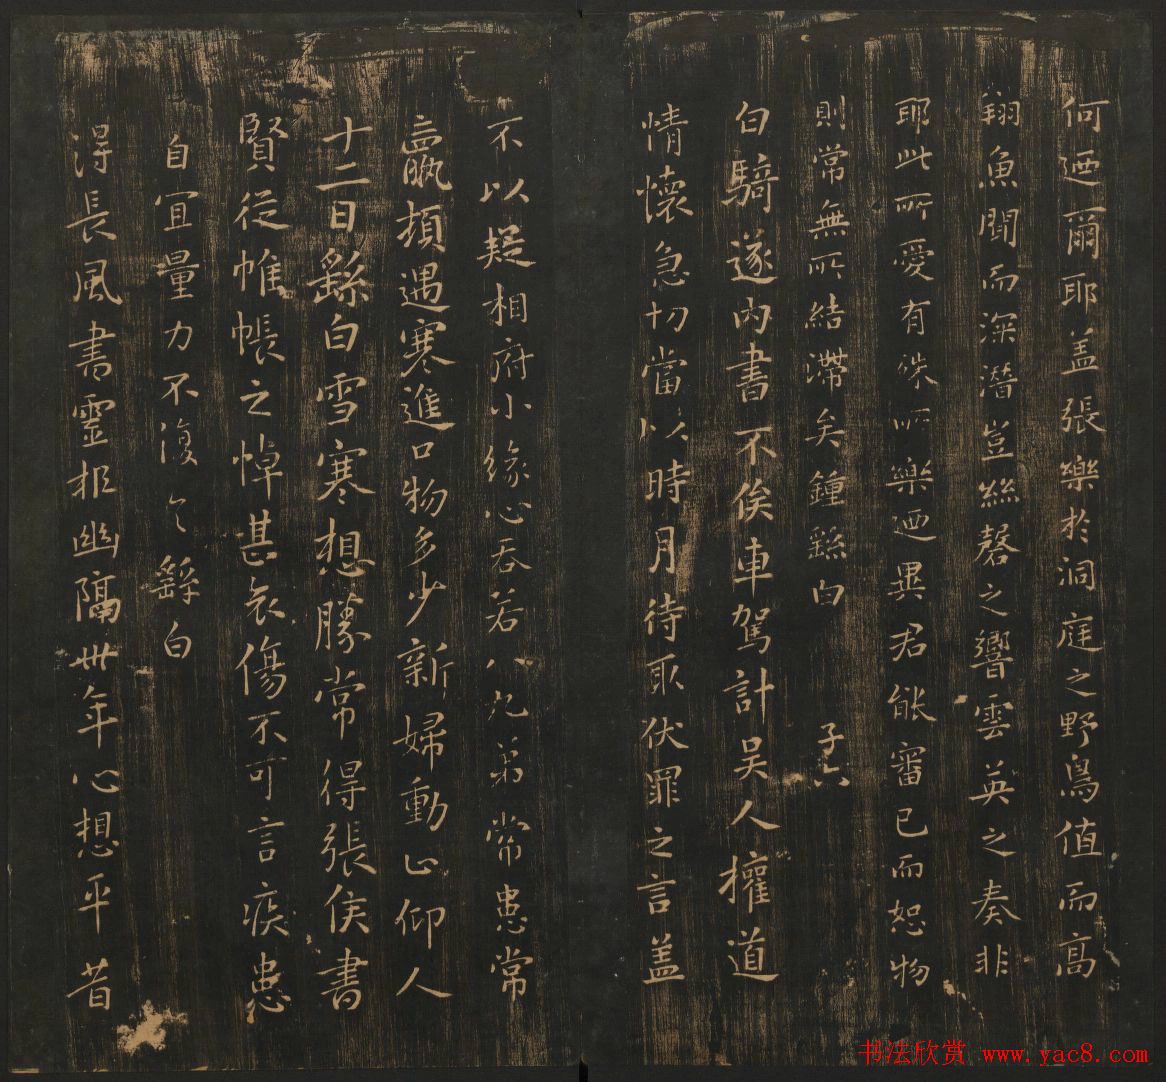 何迺爾耶蓋張樂於洞庭之野鳥值而高
翔魚聞而深潛豈絲磬之響雲英之奏非
耶此所愛有殊所樂迺異君能審己而恕物
則常無所結滯矣鍾繇白
子六
白騎遂內書不俟車駕計吳人擁道
情懷急切當以時月待取伏罪之言蓋
不以疑相府小緣心吞若八九弟常患常
羸頓遇寒進口物多少新婦動止仰人
十二日繇白雪寒想勝常得張侯書
賢從帷帳之悼甚哀傷不可言疾患
自宜量力不復々繇白
得長風書靈柩幽隔卅年心想平昔
书法欣赏 www.yac8.com